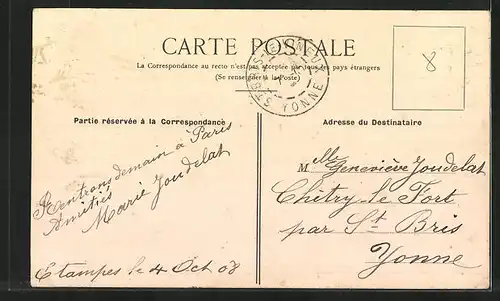 CARTE POSTALE
La Correspondance au recto n'est pas acceptée par tous les pays étrangers
(Se renseigner à la Poste)
8
YONNE
Partie réservée à la Correspondance
Adresse du Destinataire
Rentrons demain à Paris
Amitiés
Marie Joudelat
Etampes le 4 Oct 08
Melle Geneviève Joudelat
Chitry le Fort
par St Bris
Yonne